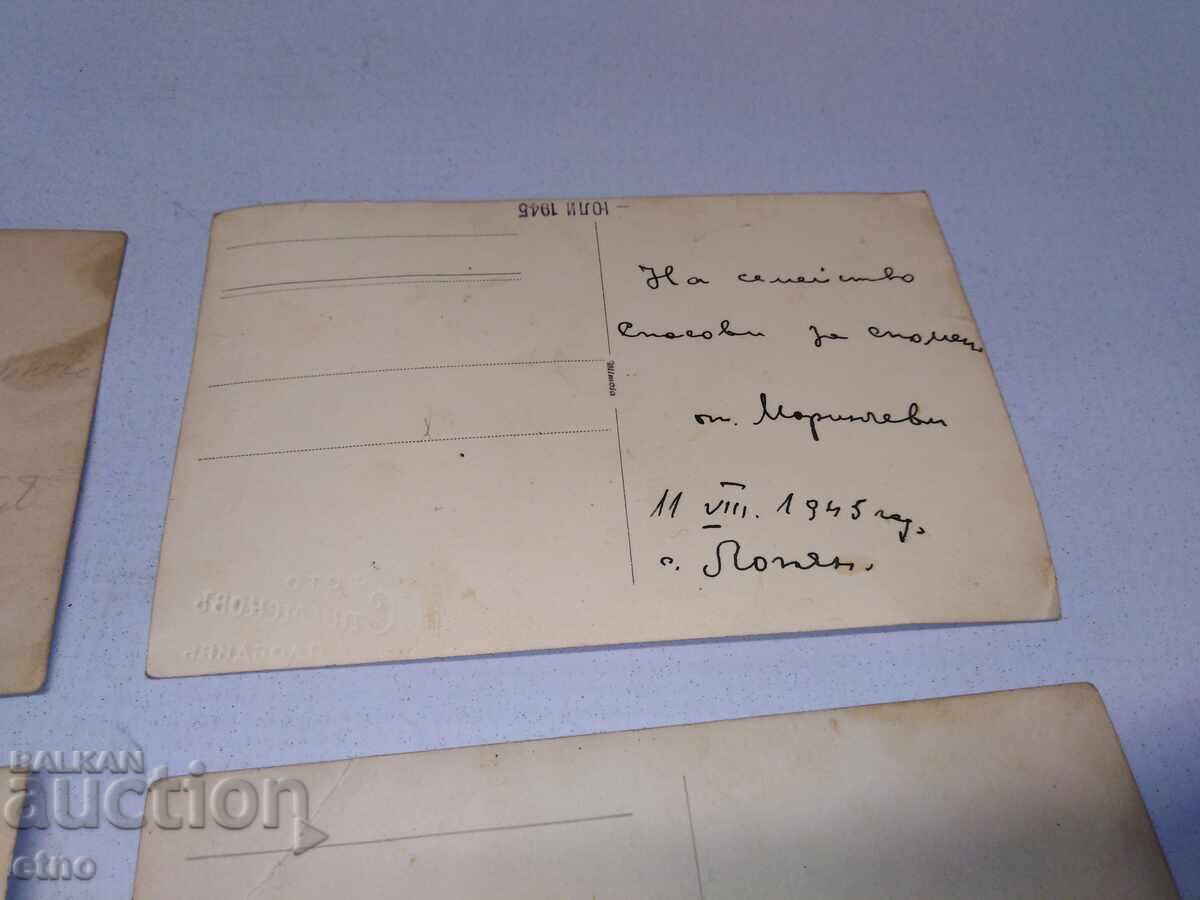 – ЮЛИ 1945
На семейство
Спасови за спомен
от. Маринчеви
11 VIII. 1945 год.
Mimosa
ФОТО
Стаменовъ
ПЛОВДИВЪ
BALKAN
auction
etno